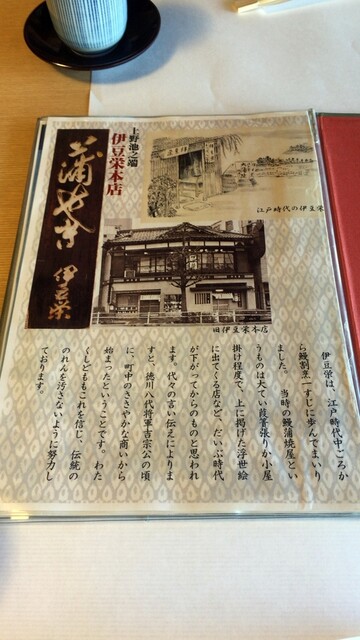 上野池之端
伊豆栄本店
蒲やき
伊豆栄
江戸時代の伊豆栄
旧伊豆栄本店
伊豆栄は、江戸時代中ごろか
ら鰻割烹一すじに歩んでまいり
ました。　当時の鰻蒲焼屋とい
うものは大てい葭簀張りか小屋
掛け程度で、上に掲げた浮世絵
に出てくる店など、だいぶ時代
が下がってからのものと思われ
ます。代々の言い伝えによりま
すと、徳川八代将軍吉宗公の頃
に、町中のささやかな商いから
始まったということです。わた
くしどももこれを信じ、伝統の
のれんを汚さないように努力し
ております。